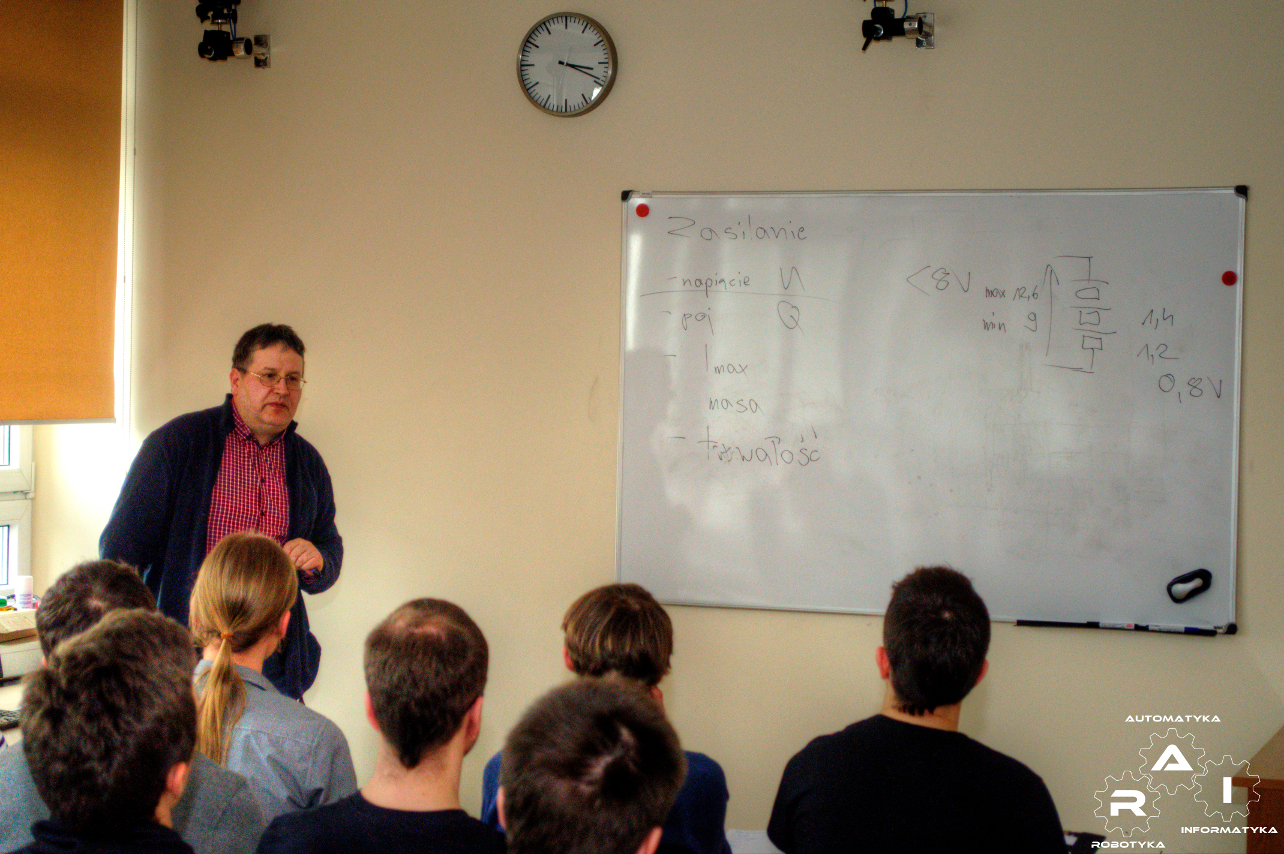 Zasilanie
- napięcie U
- poj Q
- Imax
masa
- trwałość
<8V
max 12,6
min 9
1,4
1,2
0,8V
AUTOMATYKA
A
R I
INFORMATYKA
ROBOTYKA